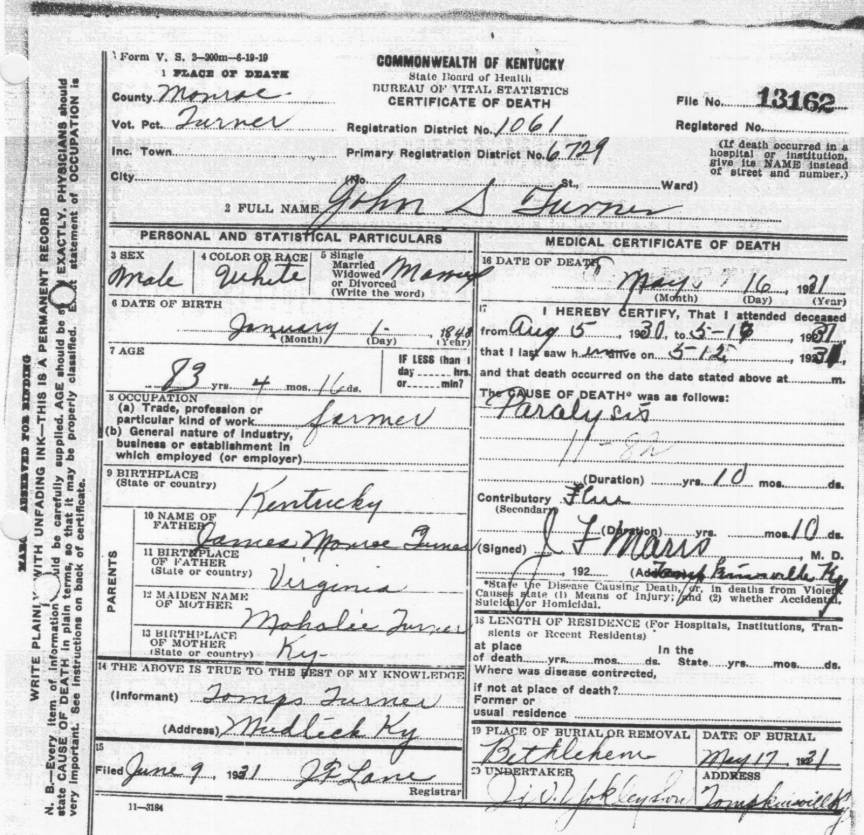 Form V. S. 3-200m-6-19-19
COMMONWEALTH OF KENTUCKY
State Board of Health
BUREAU OF VITAL STATISTICS
CERTIFICATE OF DEATH
1 PLACE OF DEATH
County Monroe
Vot. Pct. Turner
Inc. Town
City
Registration District No. 1061
Primary Registration District No. 6729
(No. St., Ward)
File No. 13162
Registered No.
(If death occurred in a
hospital or institution,
give its NAME instead
of street and number.)
2 FULL NAME John S Turner
PERSONAL AND STATISTICAL PARTICULARS
3 SEX
Male
4 COLOR OR RACE
White
5 Single
Married
Widowed
or Divorced
(Write the word)
6 DATE OF BIRTH
January 1
(Month) (Day) (Year)
7 AGE
83 yrs. 4 mos. 16 ds.
IF LESS than 1
day hrs.
or min?
8 OCCUPATION
(a) Trade, profession or
particular kind of work farmer
(b) General nature of industry,
business or establishment in
which employed (or employer)
9 BIRTHPLACE
(State or country)
Kentucky
PARENTS
10 NAME OF
FATHER
James Monroe Turner
11 BIRTHPLACE
OF FATHER
(State or country)
Virginia
12 MAIDEN NAME
OF MOTHER
Mahalie Turner
13 BIRTHPLACE
OF MOTHER
(State or country)
Ky
14 THE ABOVE IS TRUE TO THE BEST OF MY KNOWLEDGE
(Informant) Tomps Turner
(Address) Mudlick Ky
15
Filed June 9, 1931 J F Lane
Registrar
11-3184
MEDICAL CERTIFICATE OF DEATH
16 DATE OF DEATH
May 16, 1931
(Month) (Day) (Year)
17
I HEREBY CERTIFY, That I attended deceased
from Aug 5, 1930, to 5-16 1931,
that I last saw h im alive on 5-15, 1931,
and that death occurred on the date stated above at m.
The CAUSE OF DEATH* was as follows:
Paralysis
(Duration) yrs. 10 mos. ds.
Contributory Flue
(Secondary)
(Duration) yrs. mos. 10 ds.
(Signed) J F Marrs, M. D.
, 192 (Address) Tompkinsville Ky
*State the Disease Causing Death, or, in deaths from Violent
Causes state (1) Means of Injury; and (2) whether Accidental,
Suicidal or Homicidal.
18 LENGTH OF RESIDENCE (For Hospitals, Institutions, Tran-
sients or Recent Residents)
at place In the
of death yrs. mos. ds. State yrs. mos. ds.
Where was disease contracted,
if not at place of death?
Former or
usual residence
19 PLACE OF BURIAL OR REMOVAL
Bethlehem
DATE OF BURIAL
May 17, 1931
20 UNDERTAKER
ADDRESS
Tompkinsville Ky
WRITE PLAINLY WITH UNFADING INK—THIS IS A PERMANENT RECORD
N. B.—Every item of information should be carefully supplied. AGE should be EXACTLY. PHYSICIANS should
state CAUSE OF DEATH in plain terms, so that it may be properly classified. statement of OCCUPATION is
very important. See instructions on back of certificate.